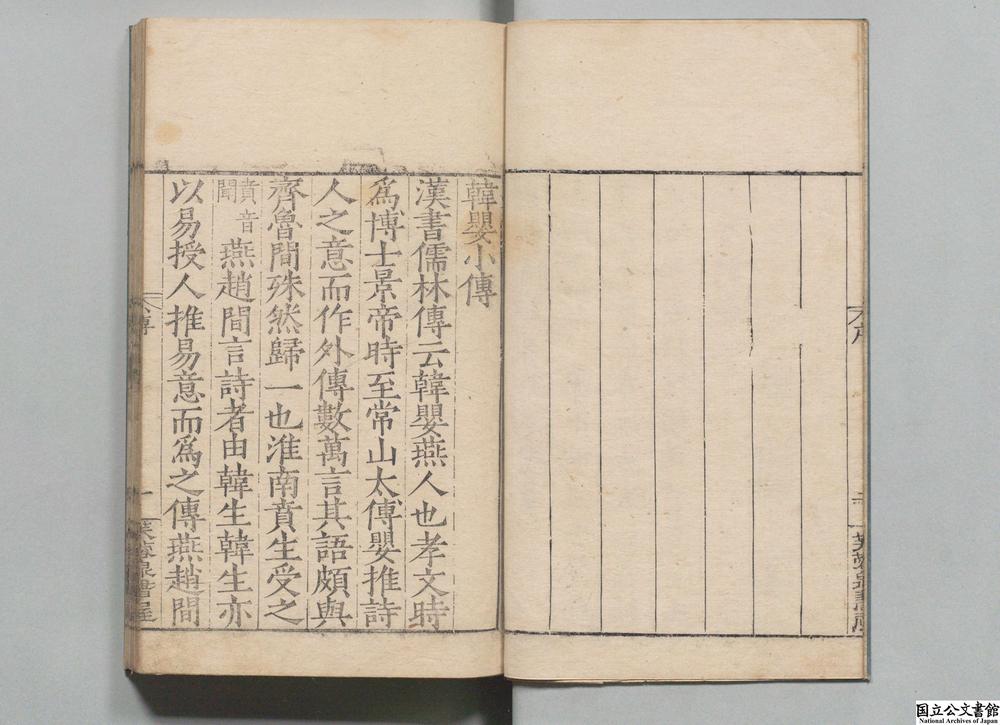 韓嬰小傳
漢書儒林傳云韓嬰燕人也孝文時
爲博士景帝時至常山太傅嬰推詩
人之意而作外傳數萬言其語頗與
齊魯間殊然歸一也淮南賁生受之
賁音
聞
燕趙間言詩者由韓生韓生亦
以易授人推易意而爲之傳燕趙間
小傳
一
芙蓉泉書屋
国立公文書館
National Archives of Japan